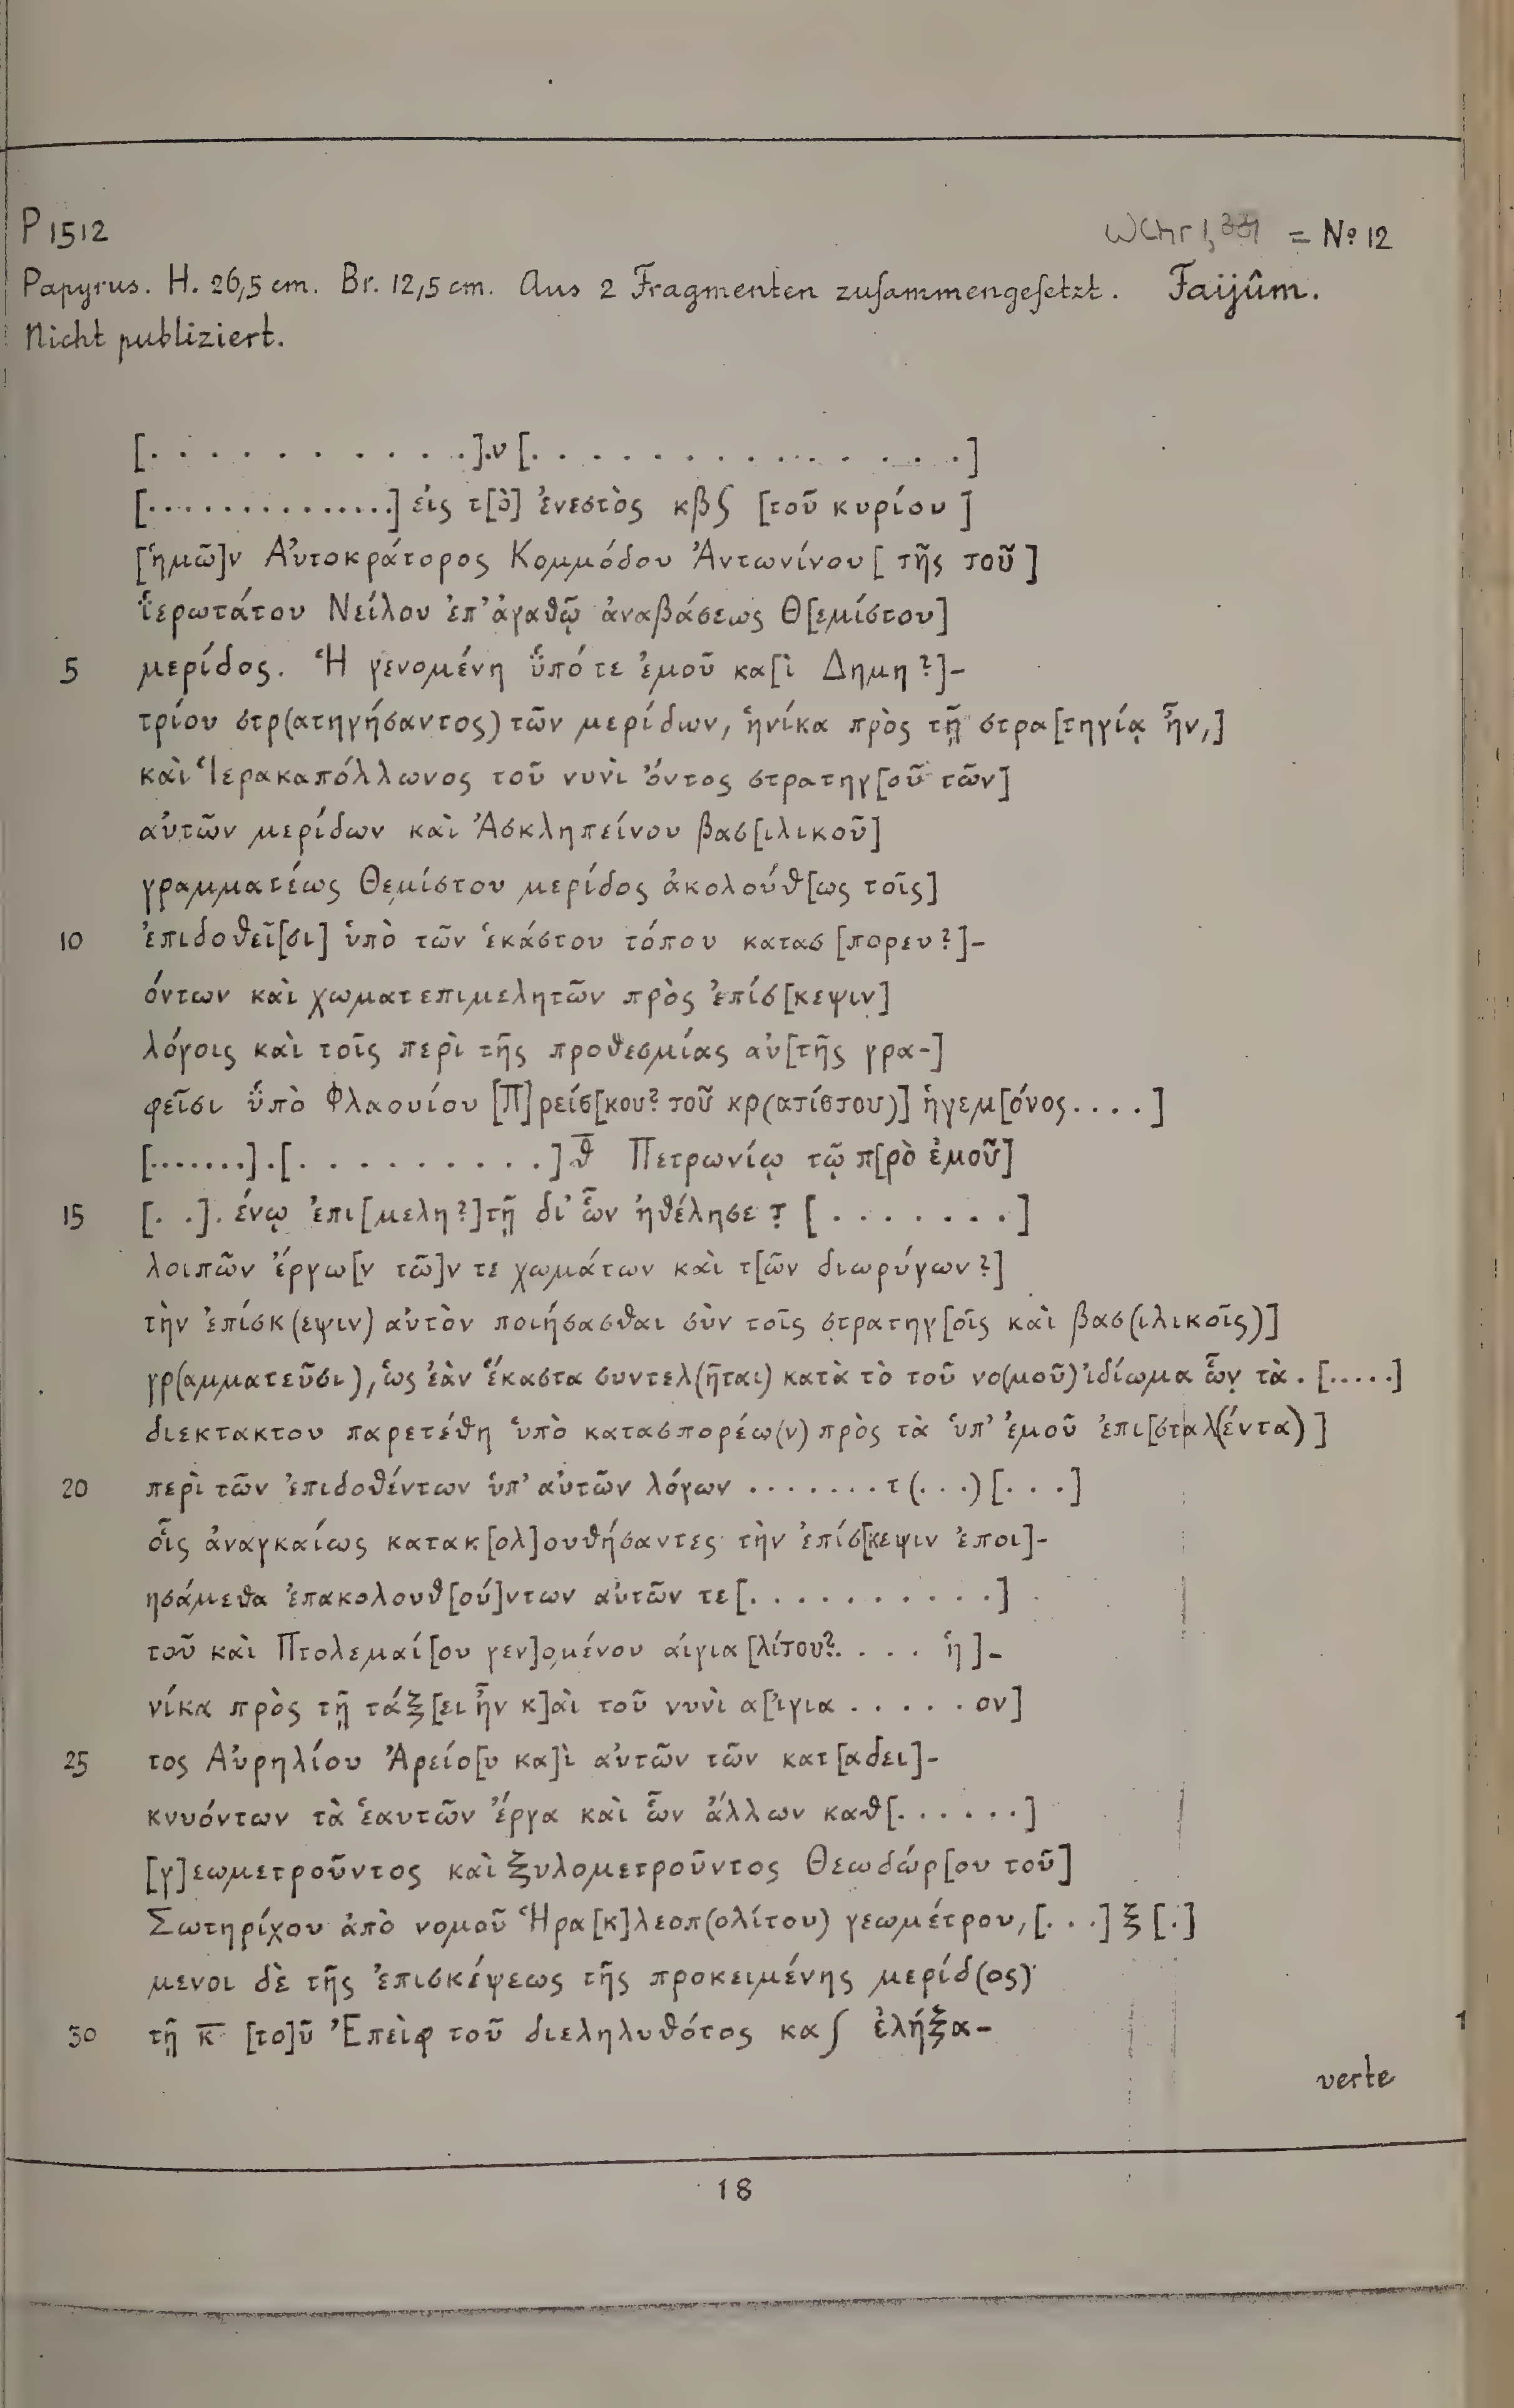 P 1512
WChr 1, = No 12
Papyrus. H. 26,5 cm. Br. 12,5 cm. Aus 2 Fragmenten zusammengesetzt. Faijûm.
Nicht publiziert.
[. . . . . . . . . . .].ν[. . . . . . . . . . . . . . .]
[. . . . . . . . . . . . . .] εἰς τ[ὸ] ἐνεστὸς κβϛ [τοῦ κυρίου]
[ἡμῶ]ν Αὐτοκράτορος Κομμόδου Ἀντωνίνου [τῆς τοῦ]
ἱερωτάτου Νείλου ἐπ' ἀγαθῷ ἀναβάσεως Θ[εμίστου]
5 μερίδος. Ἡ γενομένη ὑπό τε ἐμοῦ κα[ὶ Δημη?]-
τρίου στρ(ατηγήσαντος) τῶν μερίδων, ἡνίκα πρὸς τῇ στρα[τηγίᾳ ἦν,]
καὶ Ἱερακαπόλλωνος τοῦ νυνὶ ὄντος στρατηγ[οῦ τῶν]
αὐτῶν μερίδων καὶ Ἀσκληπείνου βασ[ιλικοῦ]
γραμματέως Θεμίστου μερίδος ἀκολούθ[ως τοῖς]
10 ἐπιδοθεῖ[σι] ὑπὸ τῶν ἑκάστου τόπου κατασ[πορευ?]-
όντων καὶ χωματεπιμελητῶν πρὸς ἐπίσ[κεψιν]
λόγοις καὶ τοῖς περὶ τῆς προθεσμίας αὐ[τῆς γρα-]
φεῖσι ὑπὸ Φλαουίου [Π]ρείσ[κου? τοῦ κρ(ατίστου)] ἡγεμ[όνος. . . .]
[. . . . . . .].[. . . . . . . . . .] θ̅ Πετρωνίῳ τῷ π[ρὸ ἐμοῦ]
15 [. .]. ένῳ ἐπι[μελη?]τῇ δι' ὧν ἠθέλησε τ̣ [. . . . . . .]
λοιπῶν ἔργω[ν τῶ]ν τε χωμάτων καὶ τ[ῶν διωρύγων?]
τὴν ἐπίσκ(εψιν) αὐτὸν ποιήσασθαι σὺν τοῖς στρατηγ[οῖς καὶ βασ(ιλικοῖς)]
γρ(αμματεῦσι), ὡς ἐὰν ἕκαστα συντελ(ῆται) κατὰ τὸ τοῦ νο(μοῦ) ἰδίωμα ὧν̣ τὰ . [. . . . .]
διεκτακτου παρετέθη ὑπὸ κατασπορέω(ν) πρὸς τὰ ὑπ' ἐμοῦ ἐπι[σταλ(έντα)]
20 περὶ τῶν ἐπιδοθέντων ὑπ' αὐτῶν λόγων . . . . . . . τ(. . .) [. . .]
οἷς ἀναγκαίως κατακ[ολ]ουθήσαντες τὴν ἐπίσ[κεψιν ἐποι]-
ησάμεθα ἐπακολουθ[ού]ντων αὐτῶν τε[. . . . . . . . . .]
τοῦ καὶ Πτολεμαί[ου γεν]ομένου αἰγια[λίτου?. . . . ἡ]-
νίκα πρὸς τῇ τάξ[ει ἦν κ]αὶ τοῦ νυνὶ α[ἰγια . . . . . ον]
25 τος Αὐρηλίου Ἀρείο[υ κα]ὶ αὐτῶν τῶν κατ[αδει]-
κνυόντων τὰ ἑαυτῶν ἔργα καὶ ὧν ἄλλων καθ[. . . . . .]
[γ]εωμετροῦντος καὶ ξυλομετροῦντος Θεωδώρ[ου τοῦ]
Σωτηρίχου ἀπὸ νομοῦ Ἡρα[κ]λεοπ(ολίτου) γεωμέτρου, [. . .] ξ [.]
μενοι δὲ τῆς ἐπισκέψεως τῆς προκειμένης μερίδ(ος)
30 τῇ κ̅ [το]ῦ Ἐπεὶφ τοῦ διεληλυθότος καʃ ἐλήξα-
verte
18